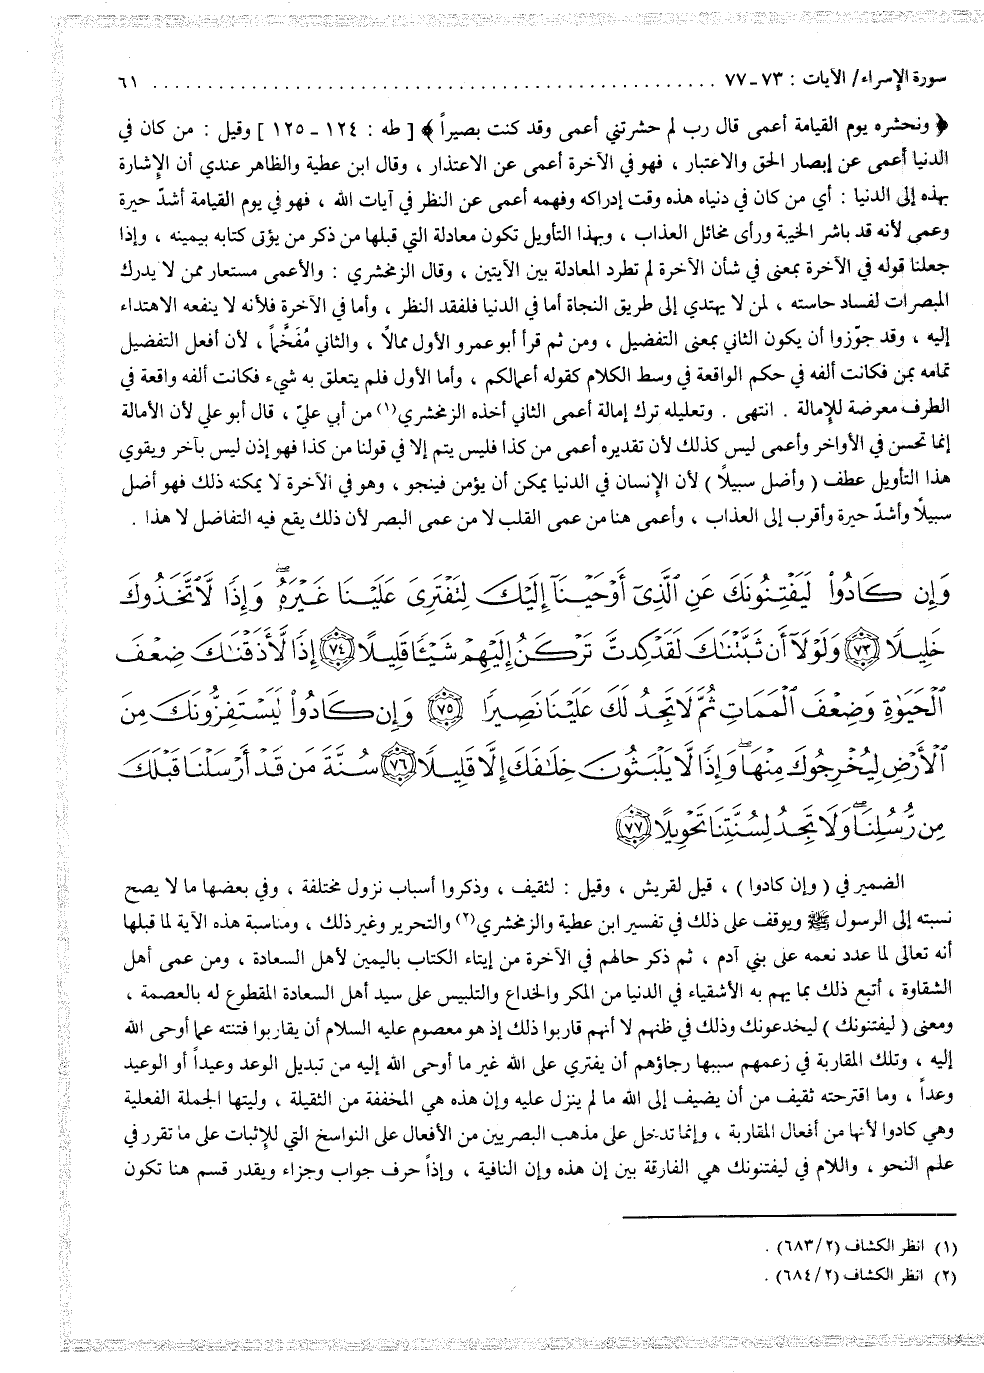 سورة الإسراء/ الآيات : ٧٣ـ٧٧ ............................................................ ٦١
﴿ ونحشره يوم القيامة أعمى قال رب لم حشرتني أعمى وقد كنت بصيراً ﴾ [ طه : ١٢٤ ـ ١٢٥ ] وقيل : من كان في
الدنيا أعمى عن إبصار الحق والاعتبار ، فهو في الآخرة أعمى عن الاعتذار ، وقال ابن عطية والظاهر عندي أن الإشارة
بهذه إلى الدنيا : أي من كان في دنياه هذه وقت إدراكه وفهمه أعمى عن النظر في آيات الله ، فهو في يوم القيامة أشدّ حيرة
وعمى لأنه قد باشر الخيبة ورأى مخائل العذاب ، وبهذا التأويل تكون معادلة التي قبلها من ذكر من يؤتى كتابه بيمينه ، وإذا
جعلنا قوله في الآخرة بمعنى في شأن الآخرة لم تطرد المعادلة بين الآيتين ، وقال الزمخشري : والأعمى مستعار ممن لا يدرك
المبصرات لفساد حاسته ، لمن لا يهتدي إلى طريق النجاة أما في الدنيا فلفقد النظر ، وأما في الآخرة فلأنه لا ينفعه الاهتداء
إليه ، وقد جوّزوا أن يكون الثاني بمعنى التفضيل ، ومن ثم قرأ أبو عمرو الأول ممالاً ، والثاني مُفَخَّماً ، لأن أفعل التفضيل
تمامه بمن فكانت ألفه في حكم الواقعة في وسط الكلام كقوله أعمالكم ، وأما الأول فلم يتعلق به شيء فكانت ألفه واقعة في
الطرف معرضة للإمالة . انتهى . وتعليله ترك إمالة أعمى الثاني أخذه الزمخشري(١) من أبي عليّ ، قال أبو علي لأن الأمالة
إنما تحسن في الأواخر وأعمى ليس كذلك لأن تقديره أعمى من كذا فليس يتم إلا في قولنا من كذا فهو إذن ليس بآخر ويقوي
هذا التأويل عطف ( وأضل سبيلاً ) لأن الإنسان في الدنيا يمكن أن يؤمن فينجو ، وهو في الآخرة لا يمكنه ذلك فهو أضل
سبيلاً وأشدّ حيرة وأقرب إلى العذاب ، وأعمى هنا من عمى القلب لا من عمى البصر لأن ذلك يقع فيه التفاضل لا هذا .
وَإِن كَادُوا۟ لَيَفْتِنُونَكَ عَنِ ٱلَّذِىٓ أَوْحَيْنَآ إِلَيْكَ لِتَفْتَرِىَ عَلَيْنَا غَيْرَهُۥ ۖ وَإِذًا لَّٱتَّخَذُوكَ
خَلِيلًا ٧٣ وَلَوْلَآ أَن ثَبَّتْنَٰكَ لَقَدْ كِدتَّ تَرْكَنُ إِلَيْهِمْ شَيْـًٔا قَلِيلًا ٧٤ إِذًا لَّأَذَقْنَٰكَ ضِعْفَ
ٱلْحَيَوٰةِ وَضِعْفَ ٱلْمَمَاتِ ثُمَّ لَا تَجِدُ لَكَ عَلَيْنَا نَصِيرًا ٧٥ وَإِن كَادُوا۟ لَيَسْتَفِزُّونَكَ مِنَ
ٱلْأَرْضِ لِيُخْرِجُوكَ مِنْهَا ۖ وَإِذًا لَّا يَلْبَثُونَ خِلَٰفَكَ إِلَّا قَلِيلًا ٧٦ سُنَّةَ مَن قَدْ أَرْسَلْنَا قَبْلَكَ
مِن رُّسُلِنَا ۖ وَلَا تَجِدُ لِسُنَّتِنَا تَحْوِيلًا ٧٧
الضمير في ( وإن كادوا ) ، قيل لقريش ، وقيل : لثقيف ، وذكروا أسباب نزول مختلفة ، وفي بعضها ما لا يصح
نسبته إلى الرسول ﷺ ويوقف على ذلك في تفسير ابن عطية والزمخشري(٢) والتحرير وغير ذلك ، ومناسبة هذه الآية لما قبلها
أنه تعالى لما عدد نعمه على بني آدم ، ثم ذكر حالهم في الآخرة من إيتاء الكتاب باليمين لأهل السعادة ، ومن عمى أهل
الشقاوة ، أتبع ذلك بما يهم به الأشقياء في الدنيا من المكر والخداع والتلبيس على سيد أهل السعادة المقطوع له بالعصمة ،
ومعنى ( ليفتنونك ) ليخدعونك وذلك في ظنهم لا أنهم قاربوا ذلك إذ هو معصوم عليه السلام أن يقاربوا فتنته عما أوحى الله
إليه ، وتلك المقاربة في زعمهم سببها رجاؤهم أن يفتري على الله غير ما أوحى الله إليه من تبديل الوعد وعيداً أو الوعيد
وعداً ، وما اقترحته ثقيف من أن يضيف إلى الله ما لم ينزل عليه وإن هذه هي المخففة من الثقيلة ، وليتها الجملة الفعلية
وهي كادوا لأنها من أفعال المقاربة ، وإنما تدخل على مذهب البصريين من الأفعال على النواسخ التي للإثبات على ما تقرر في
علم النحو ، واللام في ليفتنونك هي الفارقة بين إن هذه وإن النافية ، وإذاً حرف جواب وجزاء ويقدر قسم هنا تكون
(١) انظر الكشاف (٦٨٣/٢) .
(٢) انظر الكشاف (٦٨٤/٢) .